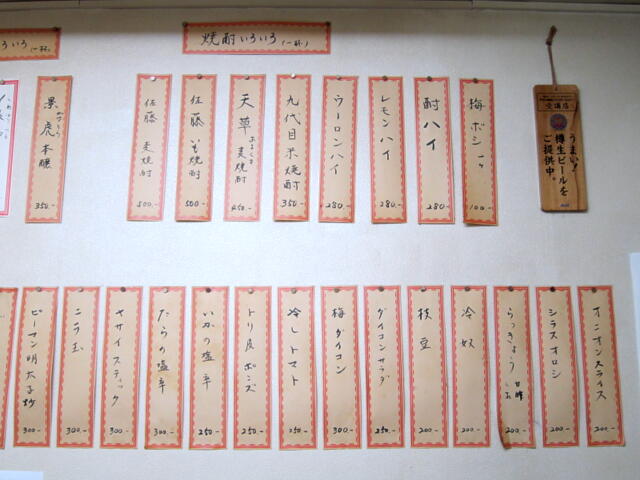 焼酎いろいろ(一杯.)
いろ(一杯.
梅ボシ 一ヶ 100.-
酎ハイ 280.-
レモンハイ 280.-
ウーロンハイ 280.-
九代目米焼酎 350.-
天草麦焼酎 450.-
佐藤いも焼酎 500.-
佐藤麦焼酎 500.-
景虎本醸 350.-
うまい!
樽生ビールを
ご提供中。
オニオンスライス 200.-
シラスオロシ 200.-
らっきょう 200.-
冷奴 200.-
枝豆 200.-
ダイコンサラダ 250.-
梅ダイコン 300.-
冷しトマト 250.-
トリ皮ポンズ 250.-
いかの塩辛 250.-
たらの塩辛 300.-
ヤサイスティック 300.-
ニラ玉 300.-
ピーマン明太子炒 300.-